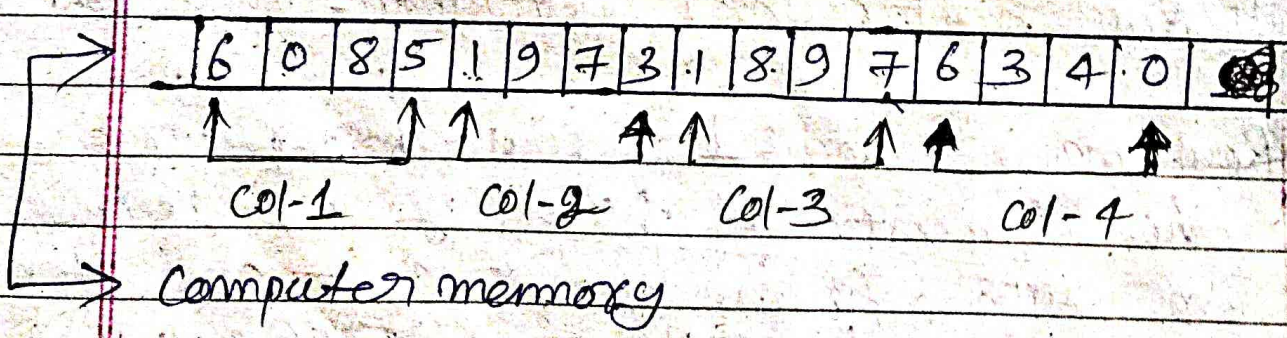 6 0 8 5 1 9 7 3 1 8 9 7 6 3 4 0
Col-1 Col-2 Col-3 Col-4
Computer memory